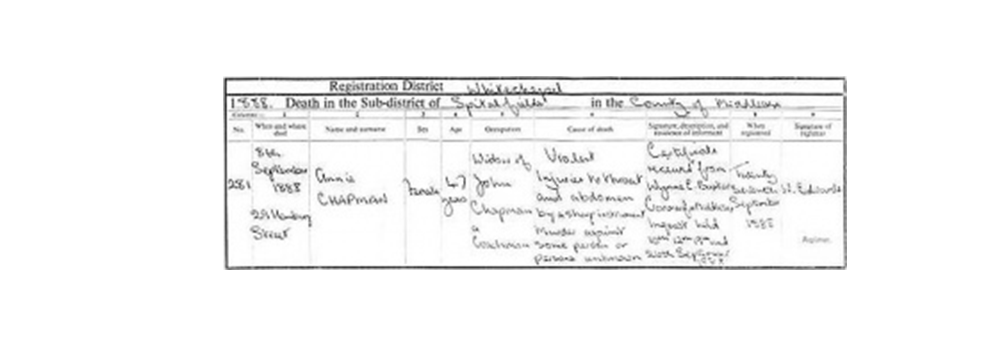 Registration District Whitechapel
1888. Death in the Sub-district of Spitalfields in the County of Middlesex
No. When and where died Name and surname Sex Age Occupation Cause of death Signature, description, and residence of informant When registered Signature of registrar
281 8th September 1888 29 Hanbury Street
Annie CHAPMAN
Female
47 years
Widow of John Chapman a Coachman
Violent Injuries to throat and abdomen by a sharp instrument Murder against some person or persons unknown
Certificate received from Wynne E. Baxter Coroner for Middlesex Inquest held 10th 12th 13th and 26th September 1888
Twenty seventh September 1888
W. Edwards
Registrar.